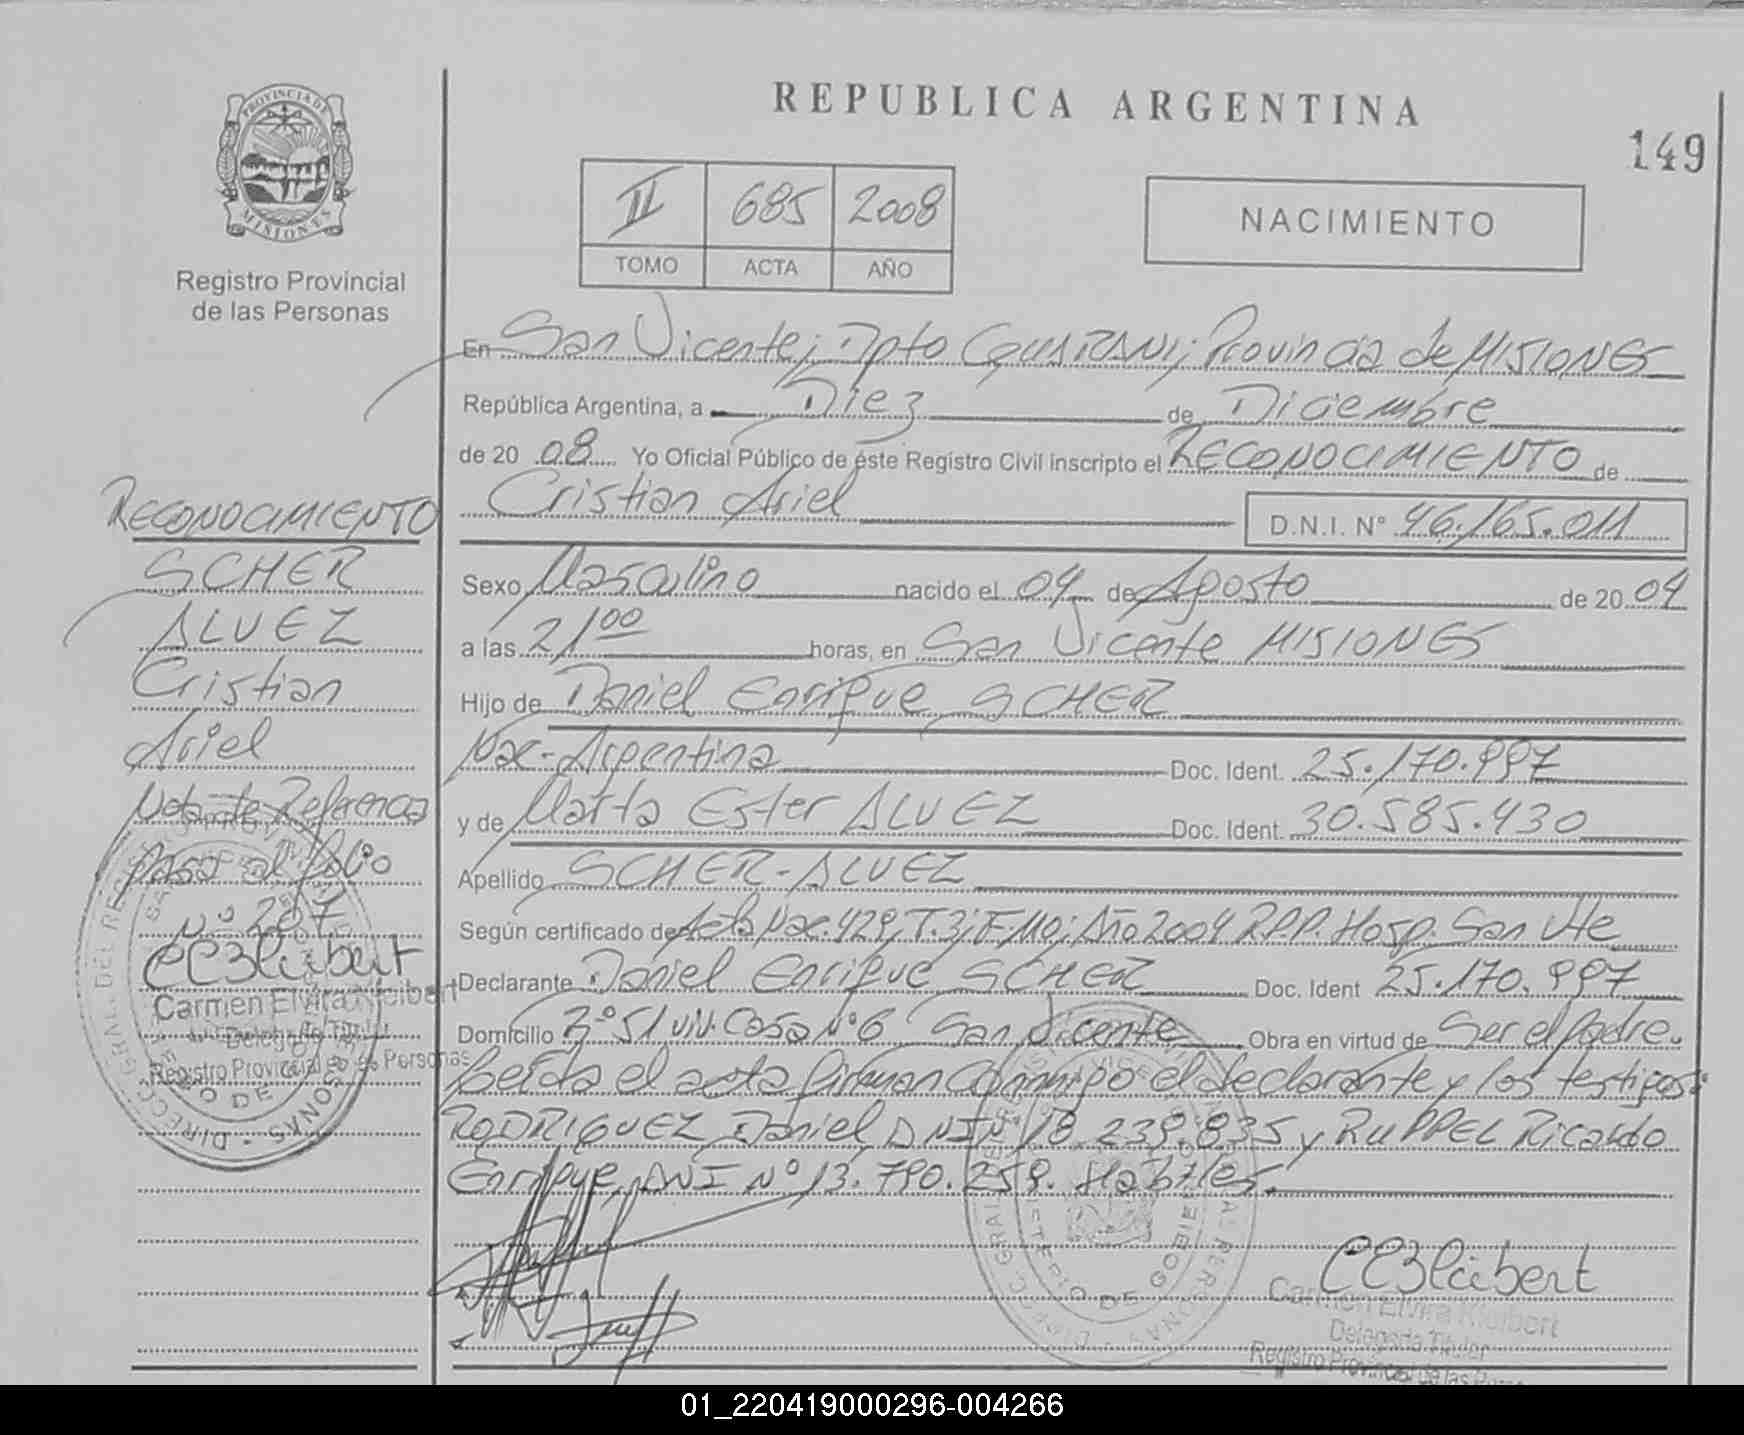 REPUBLICA ARGENTINA
149
PROVINCIA DE
MISIONES
Registro Provincial
de las Personas
II 685 2008
TOMO ACTA AÑO
NACIMIENTO
En San Vicente; Dpto GUARANI; Provincia de MISIONES
República Argentina, a Diez de Diciembre
de 20 08 Yo Oficial Público de éste Registro Civil inscripto el RECONOCIMIENTO de
Cristian Ariel D.N.I. N° 46.165.011
Sexo Masculino nacido el 04 de Agosto de 20 04
a las 21 00 horas, en San Vicente MISIONES
Hijo de Daniel Enrique SCHER
Nac-Argentina Doc. Ident. 25.170.997
y de Marta Ester ALVEZ Doc. Ident. 30.585.430
Apellido SCHER-ALVEZ
Según certificado de Acta Nac. 429; T.3; F.140; Año 2004 R.P.P. Hosp. San Vte
Declarante Daniel Enrique SCHER Doc. Ident 25.170.997
Domicilio B° 51 viv. Casa N°6 San Vicente Obra en virtud de Ser el Padre.
Leída el acta firman conmigo el declarante y los testigos:
RODRIGUEZ Daniel DNI N° 18.239.835 y RUPPEL Ricardo
Enrique DNI N° 13.790.259. Hábiles.
RECONOCIMIENTO
SCHER
ALVEZ
Cristian
Ariel
Nota de Referencia
Pasa al folio
N° 207
Carmen Elvira Kleibert
Delegada Titular
Registro Provincial de las Personas
Carmen Elvira Kleibert
Delegada Titular
Registro Provincial de las
01_220419000296-004266